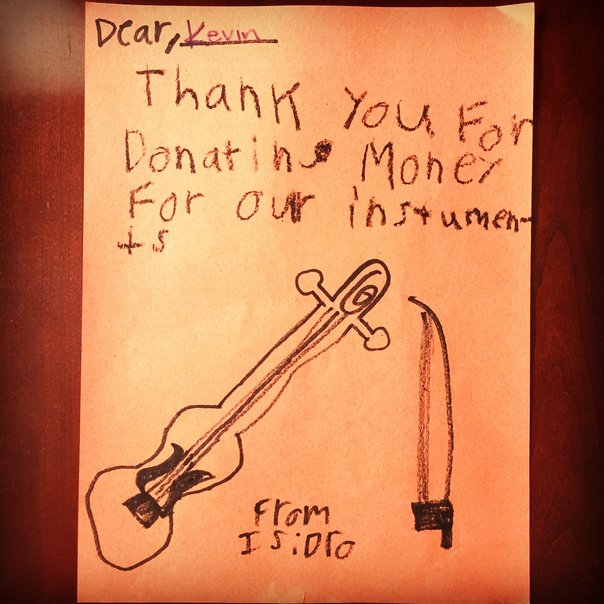 Dear, Kevin
Thank You For
Donating Money
For our instumen-
ts
From
Isidro